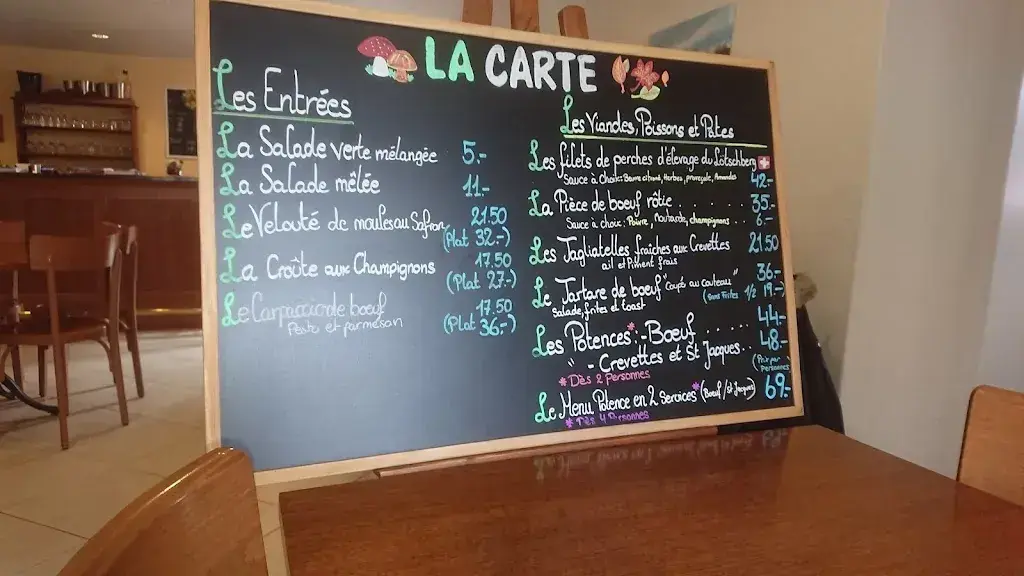 LA CARTE
Les Entrées
La Salade verte mélangée 5.-
La Salade mêlée 11.-
Le Velouté de moules au Safran 21.50
(Plat 32.-)
La Croûte aux Champignons 17.50
(Plat 27.-)
Le Carpaccio de boeuf 17.50
Pesto et parmesan (Plat 36.-)
Les Viandes, Poissons et Pâtes
Les filets de perches d'élevage du Lötschberg
Sauce à choix: Beurre citron, Herbes, provençale, Amandes 42.-
La Pièce de boeuf rôtie ..... 35.-
Sauce à choix: Poivre, moutarde, champignons ... 6.-
Les Tagliatelles fraîches aux Crevettes 21.50
ail et Piment frais
Le Tartare de boeuf "coupé au couteau" 36.-
Salade, frites et toast (Sans Frites 1/2 19.-)
Les Potences*: - Boeuf ...... 44.-
" - Crevettes et St Jacques.. 48.-
* Dès 2 personnes (Prix par Personnes)
Le Menu Potence en 2 services* (Boeuf / St Jacques) 69.-
* Dès 4 Personnes